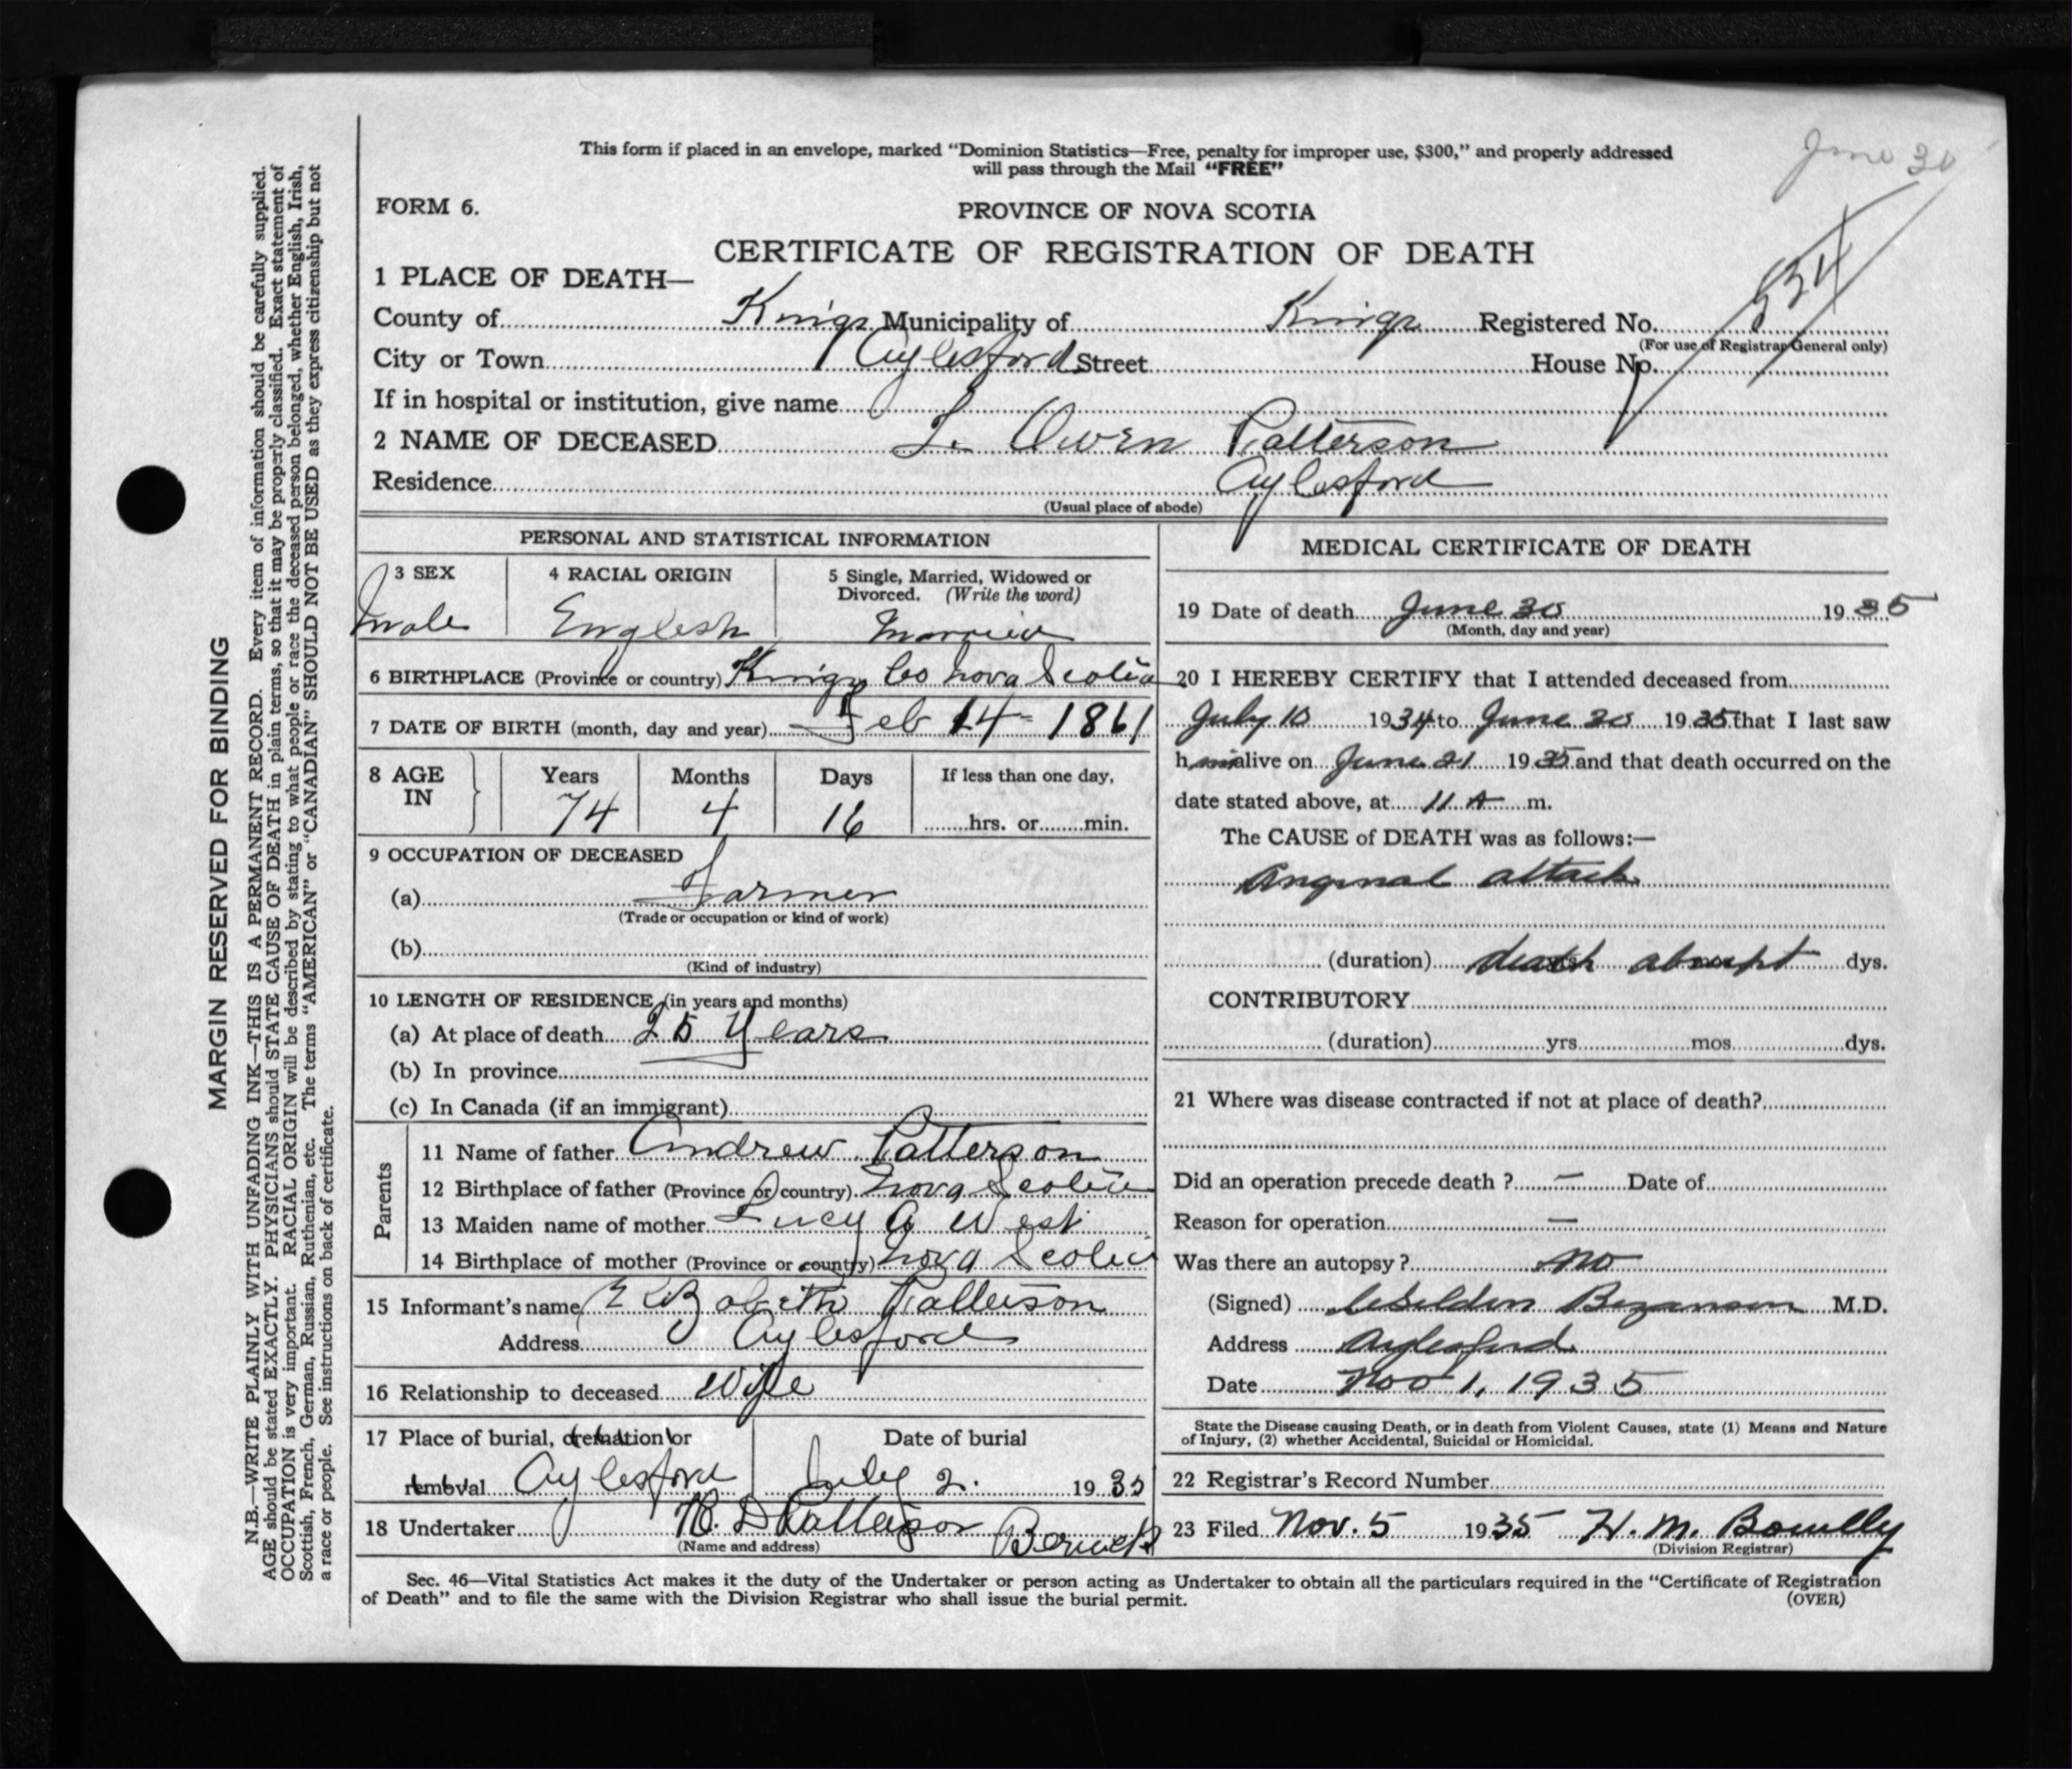 June 30
This form if placed in an envelope, marked “Dominion Statistics—Free, penalty for improper use, $300,” and properly addressed
will pass through the Mail “FREE”
FORM 6.
PROVINCE OF NOVA SCOTIA
CERTIFICATE OF REGISTRATION OF DEATH
1 PLACE OF DEATH—
County of Kings Municipality of Kings Registered No. 534
(For use of Registrar General only)
City or Town Aylesford Street House No.
If in hospital or institution, give name
2 NAME OF DECEASED L. Owen Patterson
Residence Aylesford
(Usual place of abode)
PERSONAL AND STATISTICAL INFORMATION
3 SEX 4 RACIAL ORIGIN 5 Single, Married, Widowed or
Divorced. (Write the word)
Male English Married
6 BIRTHPLACE (Province or country) Kings Co Nova Scotia
7 DATE OF BIRTH (month, day and year) Feb 14 - 1861
8 AGE IN Years Months Days If less than one day,
74 4 16 hrs. or min.
9 OCCUPATION OF DECEASED
(a) Farmer
(Trade or occupation or kind of work)
(b)
(Kind of industry)
10 LENGTH OF RESIDENCE (in years and months)
(a) At place of death 25 Years
(b) In province
(c) In Canada (if an immigrant)
Parents
11 Name of father Andrew Patterson
12 Birthplace of father (Province or country) Nova Scotia
13 Maiden name of mother Lucy A West
14 Birthplace of mother (Province or country) Nova Scotia
15 Informant's name Elizabeth Patterson
Address Aylesford
16 Relationship to deceased wife
17 Place of burial, cremation or Date of burial
removal Aylesford July 2. 1935
18 Undertaker D Patterson Berwick
(Name and address)
MEDICAL CERTIFICATE OF DEATH
19 Date of death June 30 1935
(Month, day and year)
20 I HEREBY CERTIFY that I attended deceased from
July 10 1934 to June 30 1935 that I last saw
him alive on June 21 1935 and that death occurred on the
date stated above, at 11 A m.
The CAUSE of DEATH was as follows:—
Anginal attack
(duration) death abrupt dys.
CONTRIBUTORY
(duration) yrs mos dys.
21 Where was disease contracted if not at place of death?
Did an operation precede death ? — Date of
Reason for operation —
Was there an autopsy ? no
(Signed) Bezanson M.D.
Address Aylesford
Date Nov 1, 1935
State the Disease causing Death, or in death from Violent Causes, state (1) Means and Nature
of Injury, (2) whether Accidental, Suicidal or Homicidal.
22 Registrar's Record Number
23 Filed Nov. 5 1935 H. M.
(Division Registrar)
Sec. 46—Vital Statistics Act makes it the duty of the Undertaker or person acting as Undertaker to obtain all the particulars required in the “Certificate of Registration
of Death” and to file the same with the Division Registrar who shall issue the burial permit.
(OVER)
MARGIN RESERVED FOR BINDING
N.B.—WRITE PLAINLY WITH UNFADING INK—THIS IS A PERMANENT RECORD. Every item of information should be carefully supplied.
AGE should be stated EXACTLY. PHYSICIANS should STATE CAUSE OF DEATH in plain terms, so that it may be properly classified. Exact statement of
OCCUPATION is very important. RACIAL ORIGIN will be described by stating to what people or race the deceased person belonged, whether English, Irish,
Scottish, French, German, Russian, Ruthenian, etc. The terms “AMERICAN” or “CANADIAN” SHOULD NOT BE USED as they express citizenship but not
a race or people. See instructions on back of certificate.